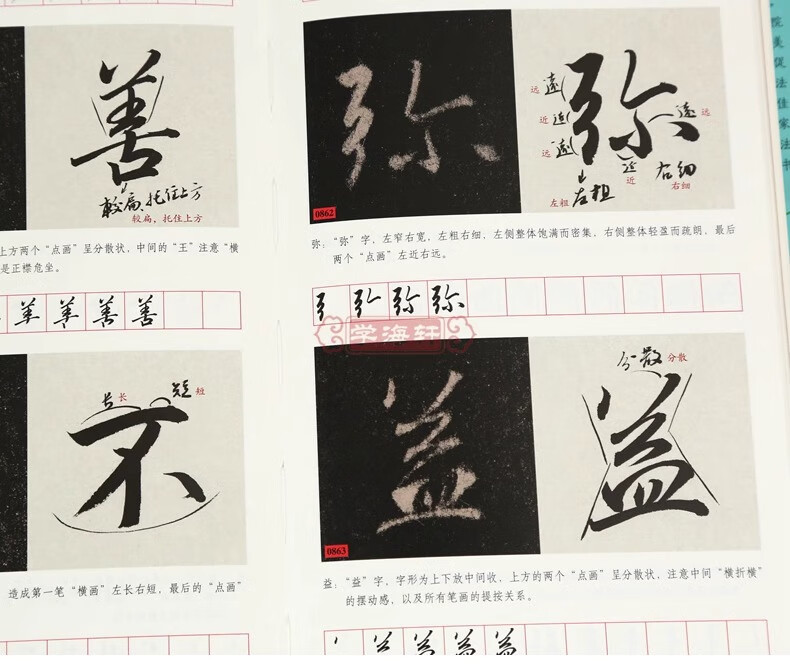 善
较扁、托住上方
较扁，托住上方
上方两个“点画”呈分散状，中间的“王”注意“横
是正襟危坐。
善 善
长 长
短 短
不
造成第一笔“横画”左长右短，最后的“点画”
弥
弥
远 遠
近 近
远 遠
遠 远
近
近
右细
右细
左粗
左粗
0862
弥：“弥”字，左窄右宽，左粗右细，左侧整体饱满而密集，右侧整体轻盈而疏朗，最后
两个“点画”左近右远。
弥 弥
学海轩
益
益
分散 分散
0863
益：“益”字，字形为上下放中间收，上方的两个“点画”呈分散状，注意中间“横折横”
的摆动感，以及所有笔画的提按关系。
益 益
院
美
促
法
佳
家
法
书